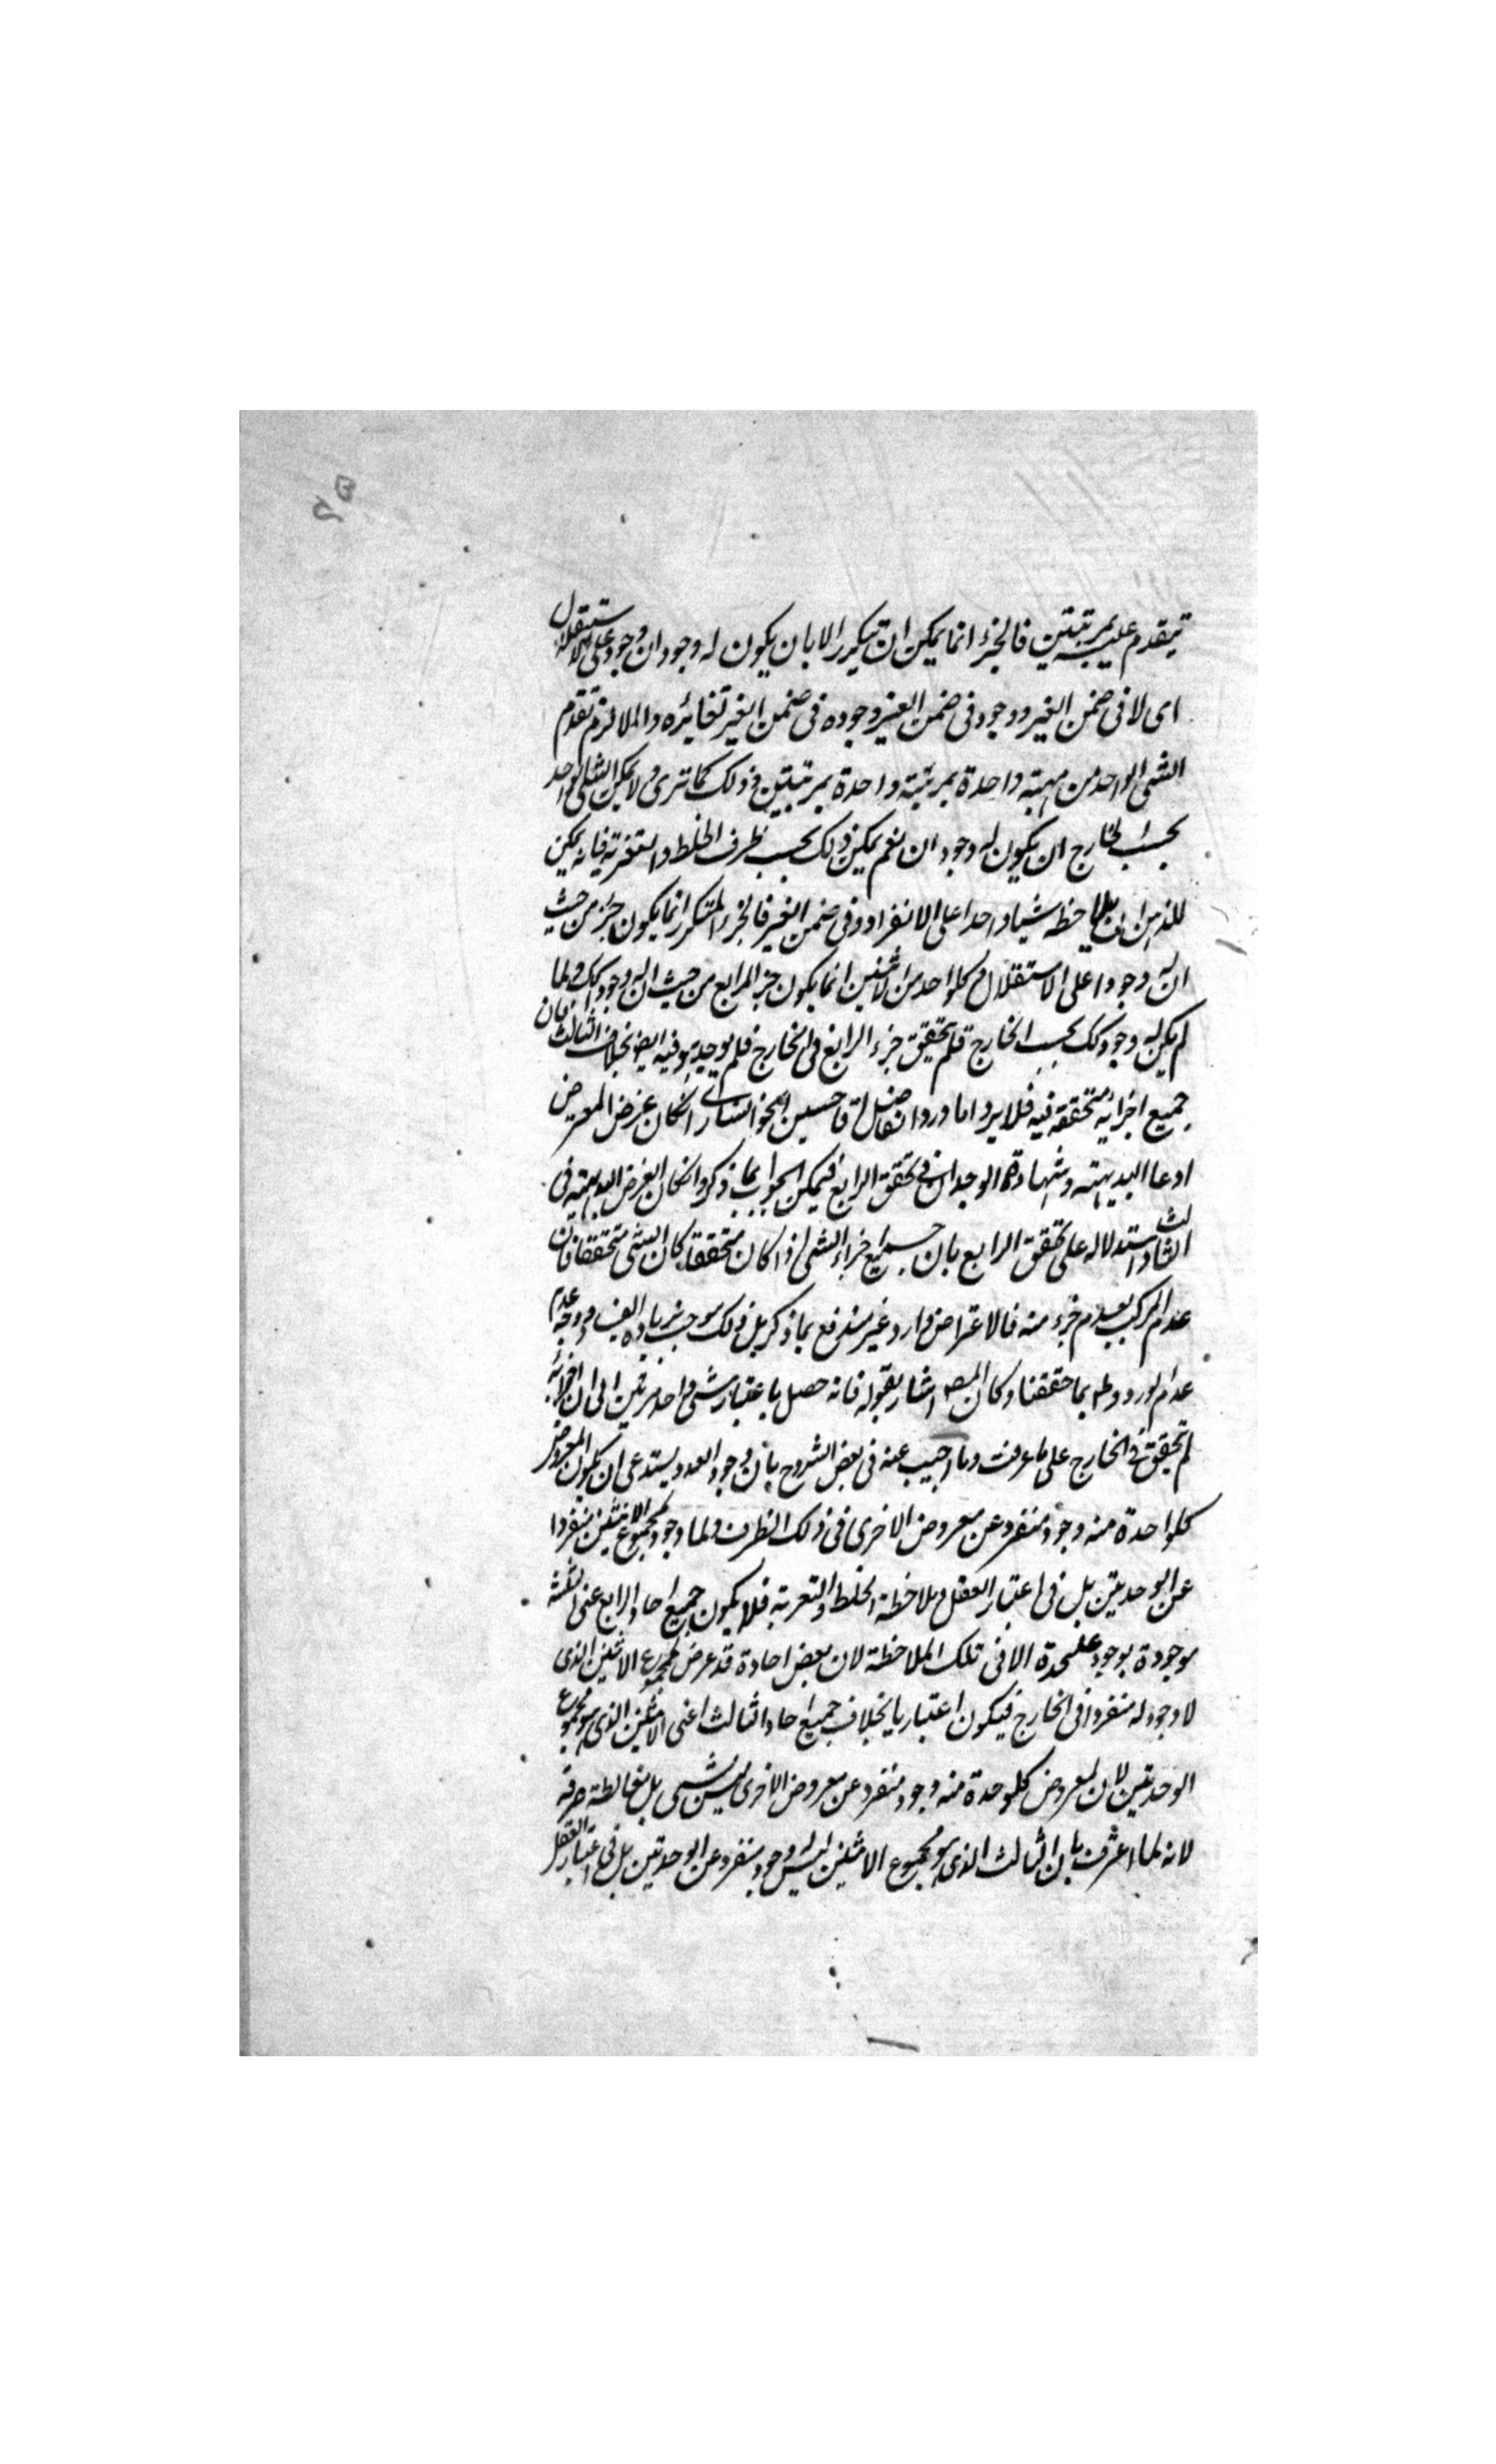 يتقدم عليه بمرتبتين فالجزء انما يمكن ان يتكرر الا بان يكون له وجودان وجود على الاستقلال
اى لا فى ضمن الغير ووجود فى ضمن الغير وجوده فى ضمن الغير تغائره والا لزم تقدم
الشى الواحد من مهية واحدة بمرتبة واحدة بمرتبتين وذلك كما ترى ولا يمكن للشى الواحد
بحسب الخارج ان يكون له وجودان نعم يمكن ذلك بحسب ظرف الخلط والتعرية فانه يمكن
للذهن ان يلاحظه شيا واحدا على الانفراد وفى ضمن الغير فالجزء المتكرر انما يكون جزء من حيث
ان له وجودا على الاستقلال وكل واحد من الاثنين انما يكون جزء الرابع من حيث ان له وجود كك ولما
لم يكن له وجود كك بحسب الخارج فلم يتحقق جزء الرابع فى الخارج فلم يوجد هو فيه ايضا بخلاف الثالث فان
جميع اجزائه متحققة فيه فلا يرد اما اورد الفاضل اقا حسين الخوانسارى ان كان غرض المعترض
ادعا البديهة وشهادة الوجدان فى تحقق الرابع فيمكن الجواب بما ذكر وان كان الغرض البديهة فى
الثالث واستدلاله على تحقق الرابع بان جميع اجزاء الشى اذا كان متحققا كان الشى متحققا فان
عدم المركب بعدم جزء منه فالاعتراض وارد غير مندفع بما ذكر بل ذلك موجب زيادة ووجه عدم
عدم الورود ظهر بما حققنا وكان المص اشار بقوله فانه حصل باعتبار شى واحد مرتين الى ان اجزائه
لم تتحقق فى الخارج على ما عرفت وما اجيب عنه فى بعض الشروح بان وجود العدد يستدعى ان يكون لمعروض
كل واحدة منه وجود منفرد عن معروض الاخرى فى ذلك الظرف ولما وجود لمجموع الاثنين منفردا
عن الوحدتين بل فى اعتبار العقل وملاحظة الخلط والتعرية فلا يكون جميع احاد الرابع اعنى الثلثة
موجودة بوجود عليحدة الا فى تلك الملاحظة لان بعض احاده قد عرض لمجموع الاثنين الذى
لا وجود له منفردا فى الخارج فيكون اعتباريا بخلاف جميع احاد الثالث اعنى الاثنين الذى هو مجموع
الوحدتين لان لمعروض كل وحدة منه وجود منفرد عن معروض الاخرى ليس بشى بل مغالطة صرفة
لانه لما اعترف بان الثالث الذى هو مجموع الاثنين ليس له وجود منفرد عن الوحدتين بل فى اعتبار العقل